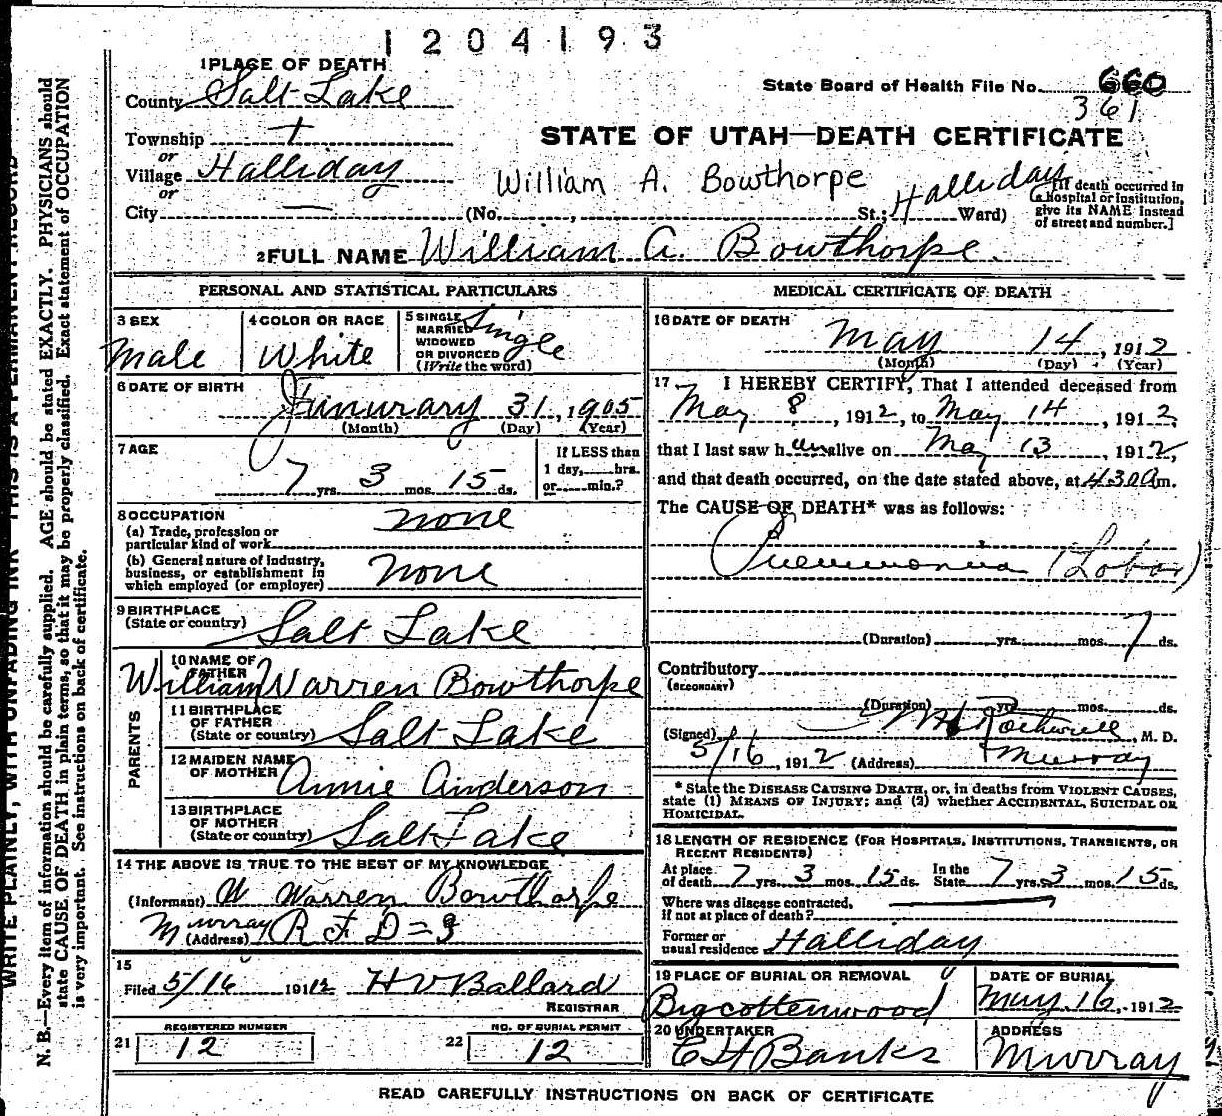 1204193
1 PLACE OF DEATH
State Board of Health File No. 660
361
County Salt Lake
STATE OF UTAH—DEATH CERTIFICATE
Township
or
Village Halliday
or
William A. Bowthorpe
City — (No. , St.; Halliday Ward)
[If death occurred in
a Hospital or institution,
give its NAME instead
of street and number.]
2 FULL NAME William A. Bowthorpe.
PERSONAL AND STATISTICAL PARTICULARS
3 SEX
Male
4 COLOR OR RACE
White
5 SINGLE
MARRIED
WIDOWED
OR DIVORCED
(Write the word)
Single
6 DATE OF BIRTH
Janurary 31, 1905
(Month) (Day) (Year)
7 AGE
7 yrs. 3 mos. 15 ds.
If LESS than
1 day, hrs.
or min.?
8 OCCUPATION
(a) Trade, profession or
particular kind of work none
(b) General nature of industry,
business, or establishment in
which employed (or employer) none
9 BIRTHPLACE
(State or country) Salt Lake
PARENTS
10 NAME OF
FATHER William Warren Bowthorpe
11 BIRTHPLACE
OF FATHER
(State or country) Salt Lake
12 MAIDEN NAME
OF MOTHER Annie Anderson
13 BIRTHPLACE
OF MOTHER
(State or country) Salt Lake
14 THE ABOVE IS TRUE TO THE BEST OF MY KNOWLEDGE
(Informant) W Warren Bowthorpe
(Address) Murray R F D =
15
Filed 5/16 1912 H V Ballard
REGISTRAR
21 REGISTERED NUMBER
12
22 NO. OF BURIAL PERMIT
12
MEDICAL CERTIFICATE OF DEATH
16 DATE OF DEATH
May 14, 1912
(Month) (Day) (Year)
17 I HEREBY CERTIFY, That I attended deceased from
May 8, 1912, to May 14, 1912,
that I last saw h im alive on May 13, 1912,
and that death occurred, on the date stated above, at 4.30 a m.
The CAUSE OF DEATH* was as follows:
Pneumonia (Lobar)
(Duration) yrs. mos. 7 ds.
Contributory
(SECONDARY)
(Duration) yrs. mos. ds.
(Signed) Rothwell, M. D.
5/16, 1912 (Address) Murray
* State the DISEASE CAUSING DEATH, or, in deaths from VIOLENT CAUSES,
state (1) MEANS OF INJURY; and (2) whether ACCIDENTAL, SUICIDAL OR
HOMICIDAL.
18 LENGTH OF RESIDENCE (FOR HOSPITALS, INSTITUTIONS, TRANSIENTS, OR
RECENT RESIDENTS)
At place
of death 7 yrs. 3 mos. 15 ds. In the
State 7 yrs. 3 mos. 15 ds.
Where was disease contracted,
if not at place of death?
Former or
usual residence Halliday
19 PLACE OF BURIAL OR REMOVAL
Big cottenwood
DATE OF BURIAL
May 16, 1912
20 UNDERTAKER
E H Banks
ADDRESS
Murray
READ CAREFULLY INSTRUCTIONS ON BACK OF CERTIFICATE
WRITE PLAINLY, WITH UNFADING INK—THIS IS A PERMANENT RECORD
N. B.—Every item of information should be carefully supplied. AGE should be stated EXACTLY. PHYSICIANS should
state CAUSE OF DEATH in plain terms, so that it may be properly classified. Exact statement of OCCUPATION
is very important. See instructions on back of certificate.